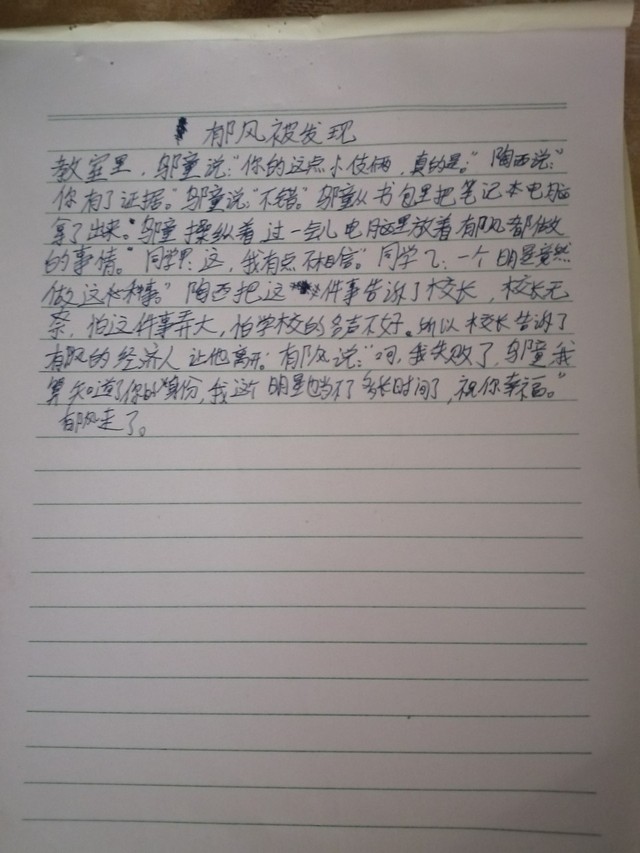 郁风被发现
教室里，邬童说：“你的这点小伎俩，真的是。”陶西说：“
你有了证据。”邬童说：“不错。”邬童从书包里把笔记本电脑
拿了出来。邬童操纵着过一会儿电脑里放着郁风都做
的事情。”同学甲：这，我有点不相信。”同学乙：一个明星竟然
做这种事。”陶西把这件事告诉了校长，校长无
奈，怕这件事弄大，怕学校的名声不好。所以校长告诉了
郁风的经济人让他离开。郁风说：“呵，我失败了，邬童我
算知道了你的身份，我这个明星也当不了多长时间了，祝你幸福。”
郁风走了。